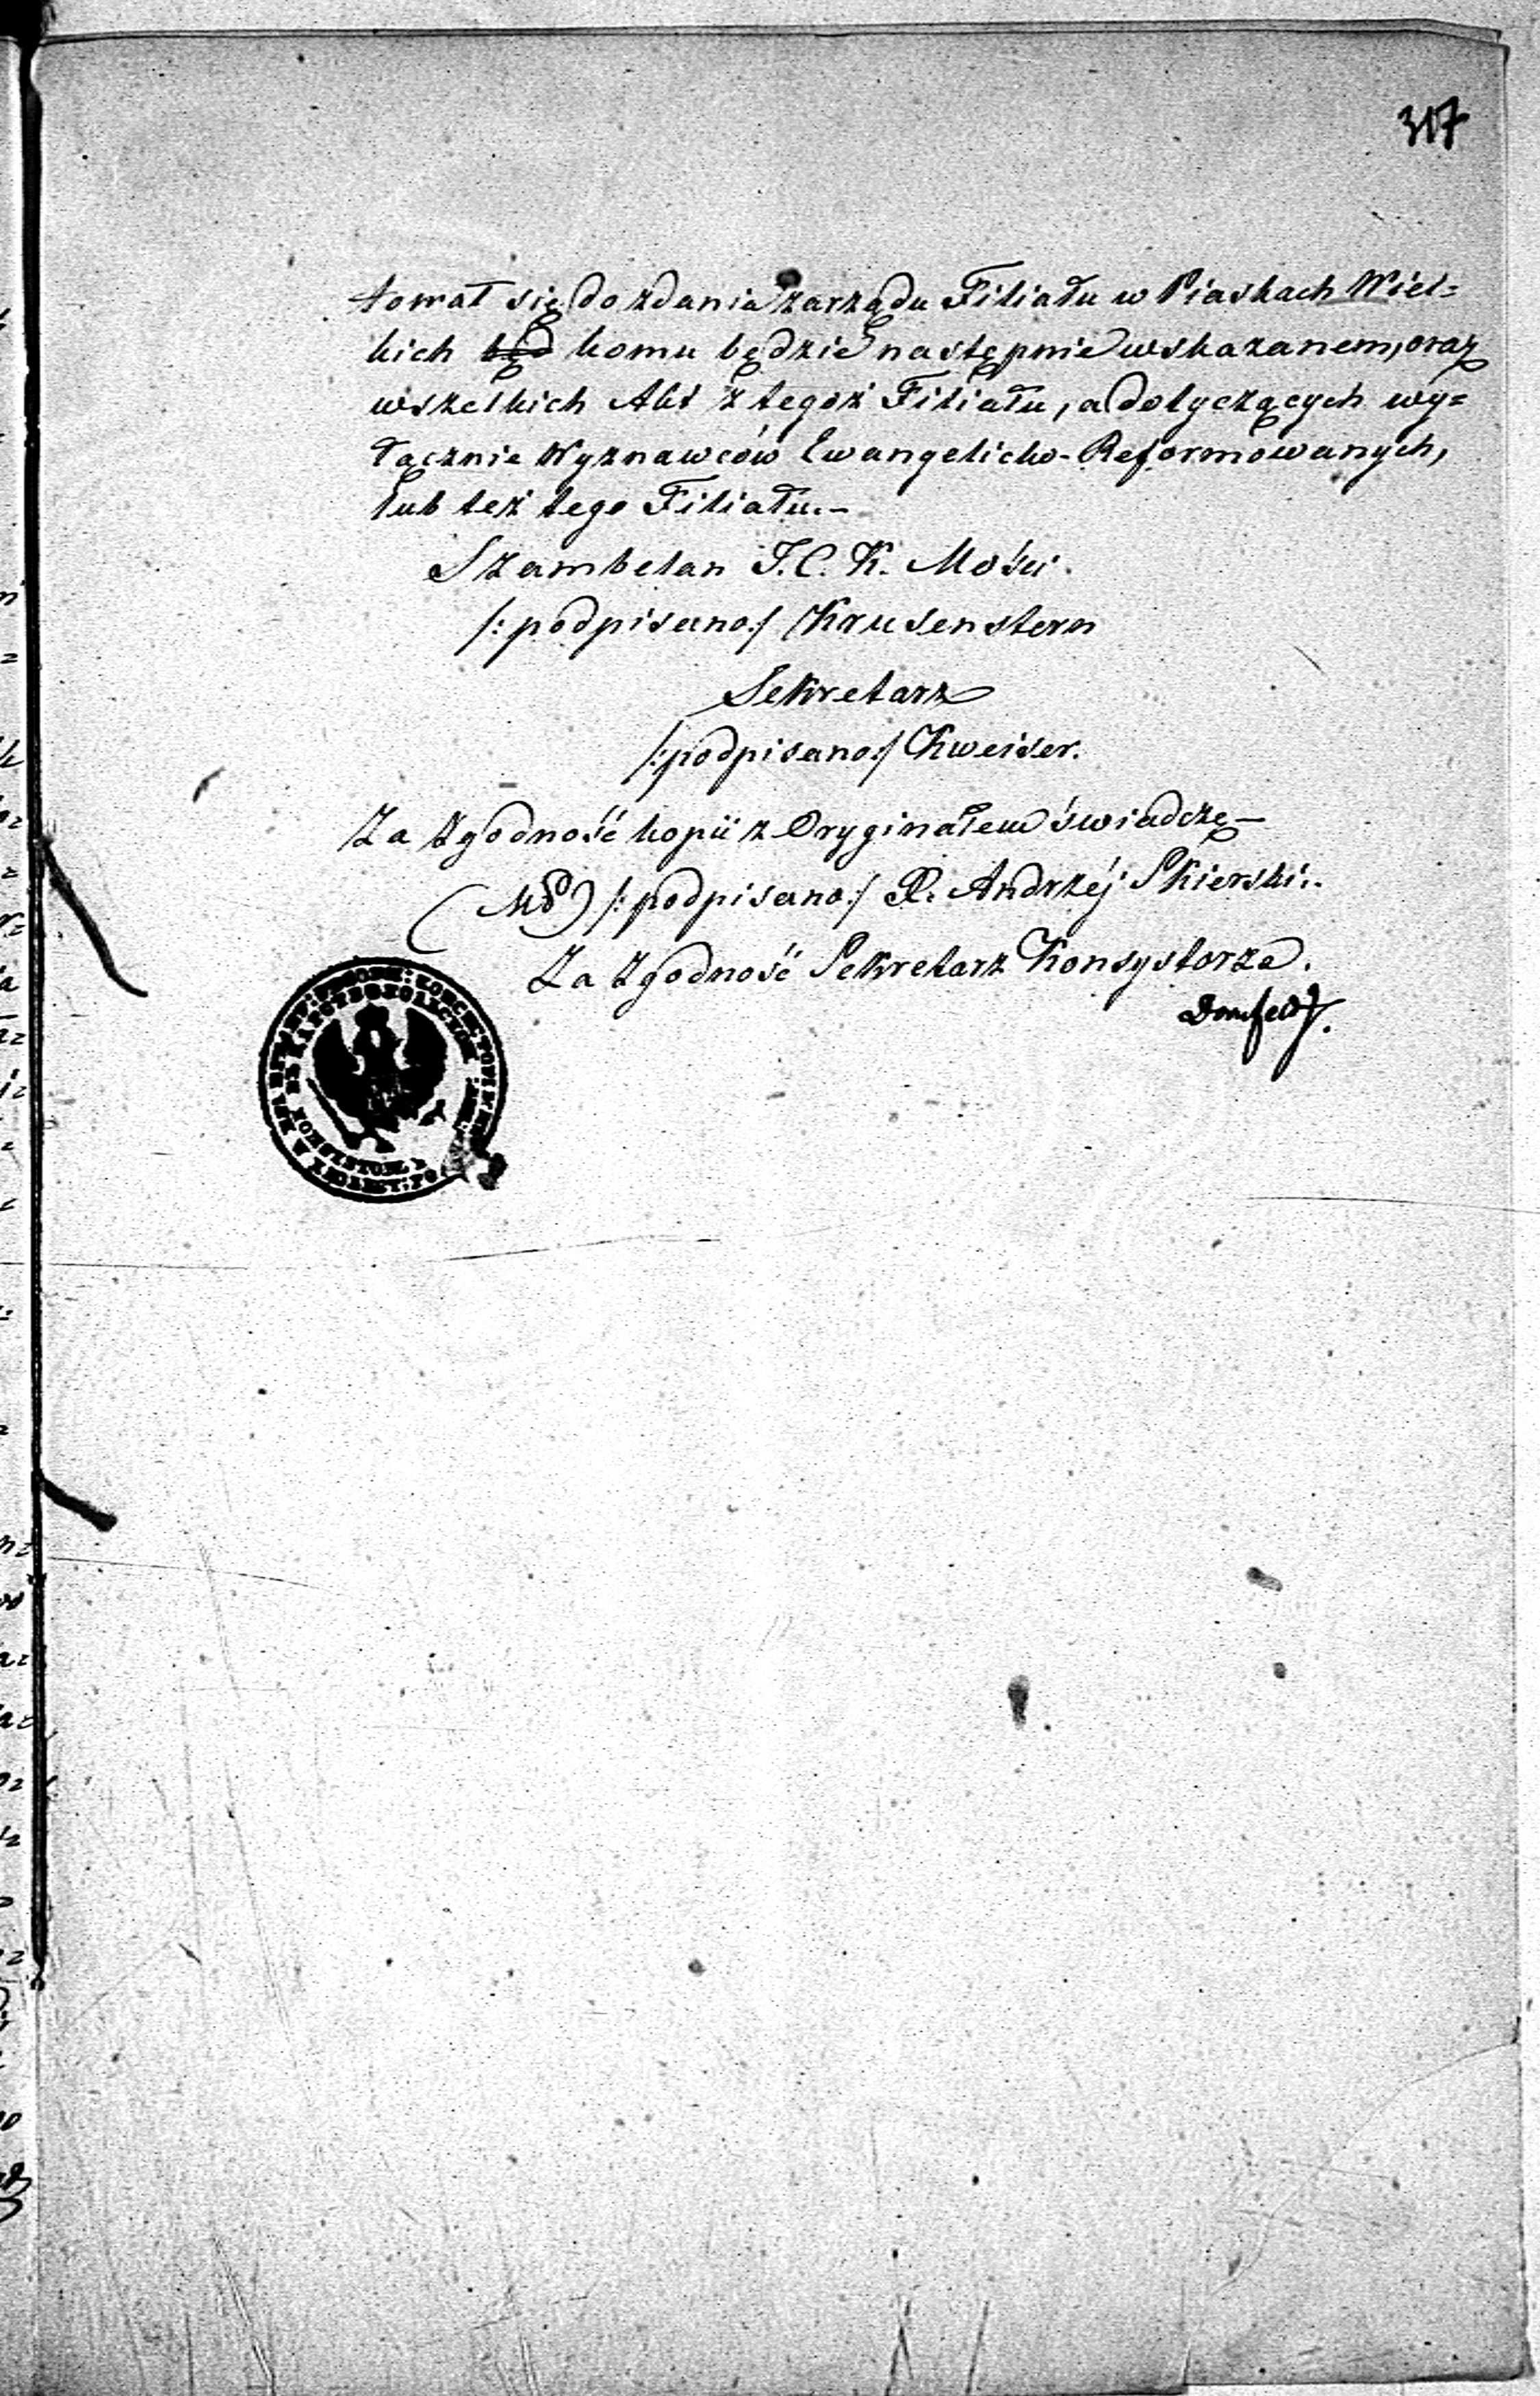 317
tował się do zdania zarządu Filiału w Piaskach Wiel=
kich będ komu będzie następnie wskazanem, oraz
wszelkich Akt z tegoż Filiału, a dotyczących wy=
łącznie Wyznawców Ewangelicko-Reformowanych,
lub też tego Filiału.-
Szambelan J. C. K. Mości.
/:podpisano:/ Krusenstern
Sekretarz
/:podpisano:/ Kweiser.
Za Zgodność kopii z Oryginałem świadczę-
(MP) /:podpisano:/ X. Andrzéj Skierski.
Za Zgodność Sekretarz Konsystorza.